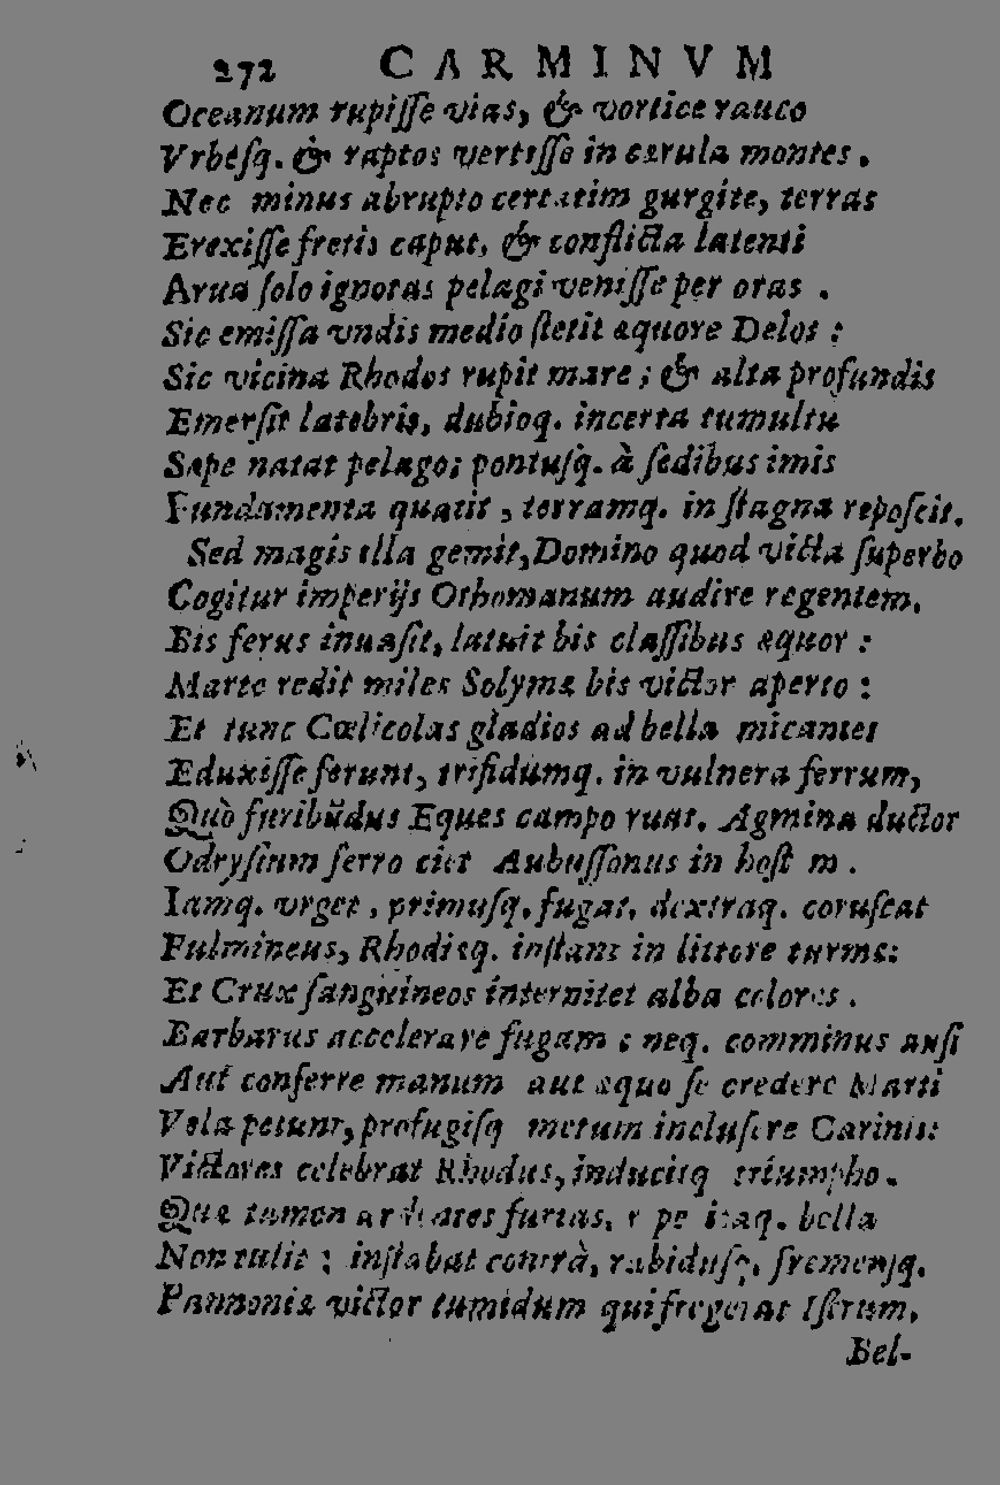 272 CARMINVM
Oceanum rupiſſe vias, & vortice rauco
Vrbéſq. & raptos vertiſſe in cærula montes.
Nec minus abrupto certatim gurgite, terras
Erexiſſe fretis caput, & conflicta latenti
Arua ſolo ignotas pelagi veniſſe per oras.
Sic emiſſa vndis medio ſtetit æquore Delos:
Sic vicina Rhodos rupit mare; & alta profundis
Emerſit latebris, dubioq. incerta tumultu
Sæpe natat pelago; pontuſq. à ſedibus imis
Fundamenta quatit, terramq. in ſtagna repoſcit.
Sed magis illa gemit, Domino quod victa ſuperbo
Cogitur imperijs Othomanum audire regentem.
Bis ferus inuaſit, latuit bis claſſibus æquor:
Marte redit miles Solymæ bis victor aperto:
Et tunc Cœlicolas gladios ad bella micantes
Eduxiſſe ferunt, trifidumq. in vulnera ferrum,
Quò furibũdus Eques campo ruat. Agmina ductor
Odryſium ferro ciet Aubuſſonus in hoſtem.
Iamq. vrget, primuſq. fugat, dextraq. coruſcat
Fulmineus, Rhodiæq. inſtant in littore turmæ:
Et Crux ſanguineos internitet alba colores.
Barbarus accelerare fugam; neq. comminus auſi
Aut conferre manum aut æquo ſe credere Marti
Vela petunt, profugiſq metum incluſere Carinis:
Victores celebrat Rhodus, inducitq triumpho.
Quæ tamen furias, bella
Non tulit; inſtabat contrà, rabiduſq. fremenſq.
Pannoniæ victor tumidum qui fregerat Iſtrum,
Bel-